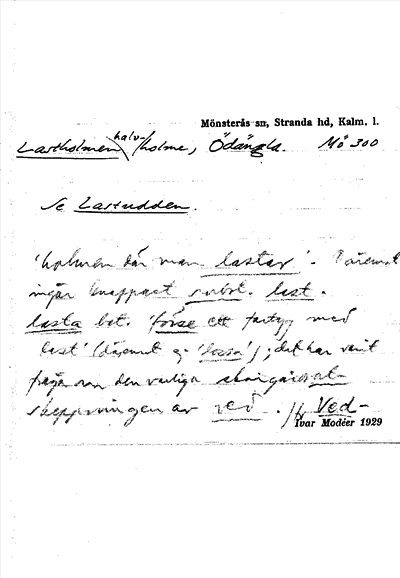 Mönsterås sn, Stranda hd, Kalm. l.
Lastholmen halv-/holme, Ödängla. Mö 300
Se Lastudden.
'holmen där man lastar'. I
ingår knappast subst. last.
lasta bet. 'förse ett fartyg med
last' (däremot ej 'lossa'); det har varit
fråga om den vanliga
skeppningen av ved. // Ved-
Ivar Modéer 1929